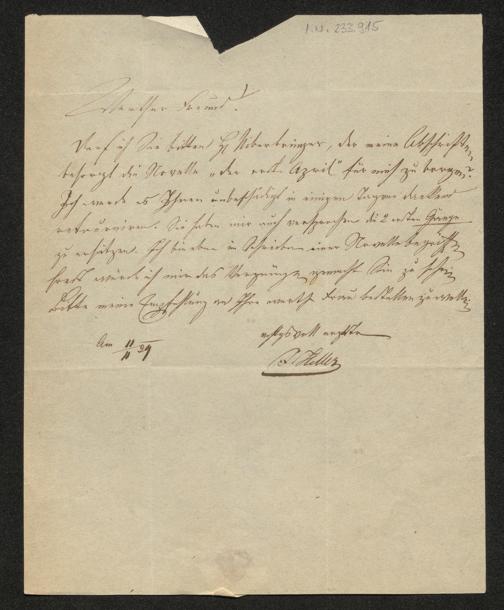 I.N. 233.945
Werther Freund!
Darf ich Sie bitten H Überbringer, der meine Abschriften
besorgt die Novelle „der erste April" für mich zu borgen?
Ich werde es Ihnen unbeschädigt in einigen Tagen dankend
retourniren. Sie haben mir auch versprochen die 2 ersten Gänge
zu ersetzen. Ich bin eben im Schreiben einer Novelle begriffen
sonst würde ich mir das Vergnügen gemacht Sie zu sehen
Bitte meine Empfehlung an Ihre werthe Frau bestellen zu wollen
Am 11/11 39
achtungsvoll ergebenster
Heller